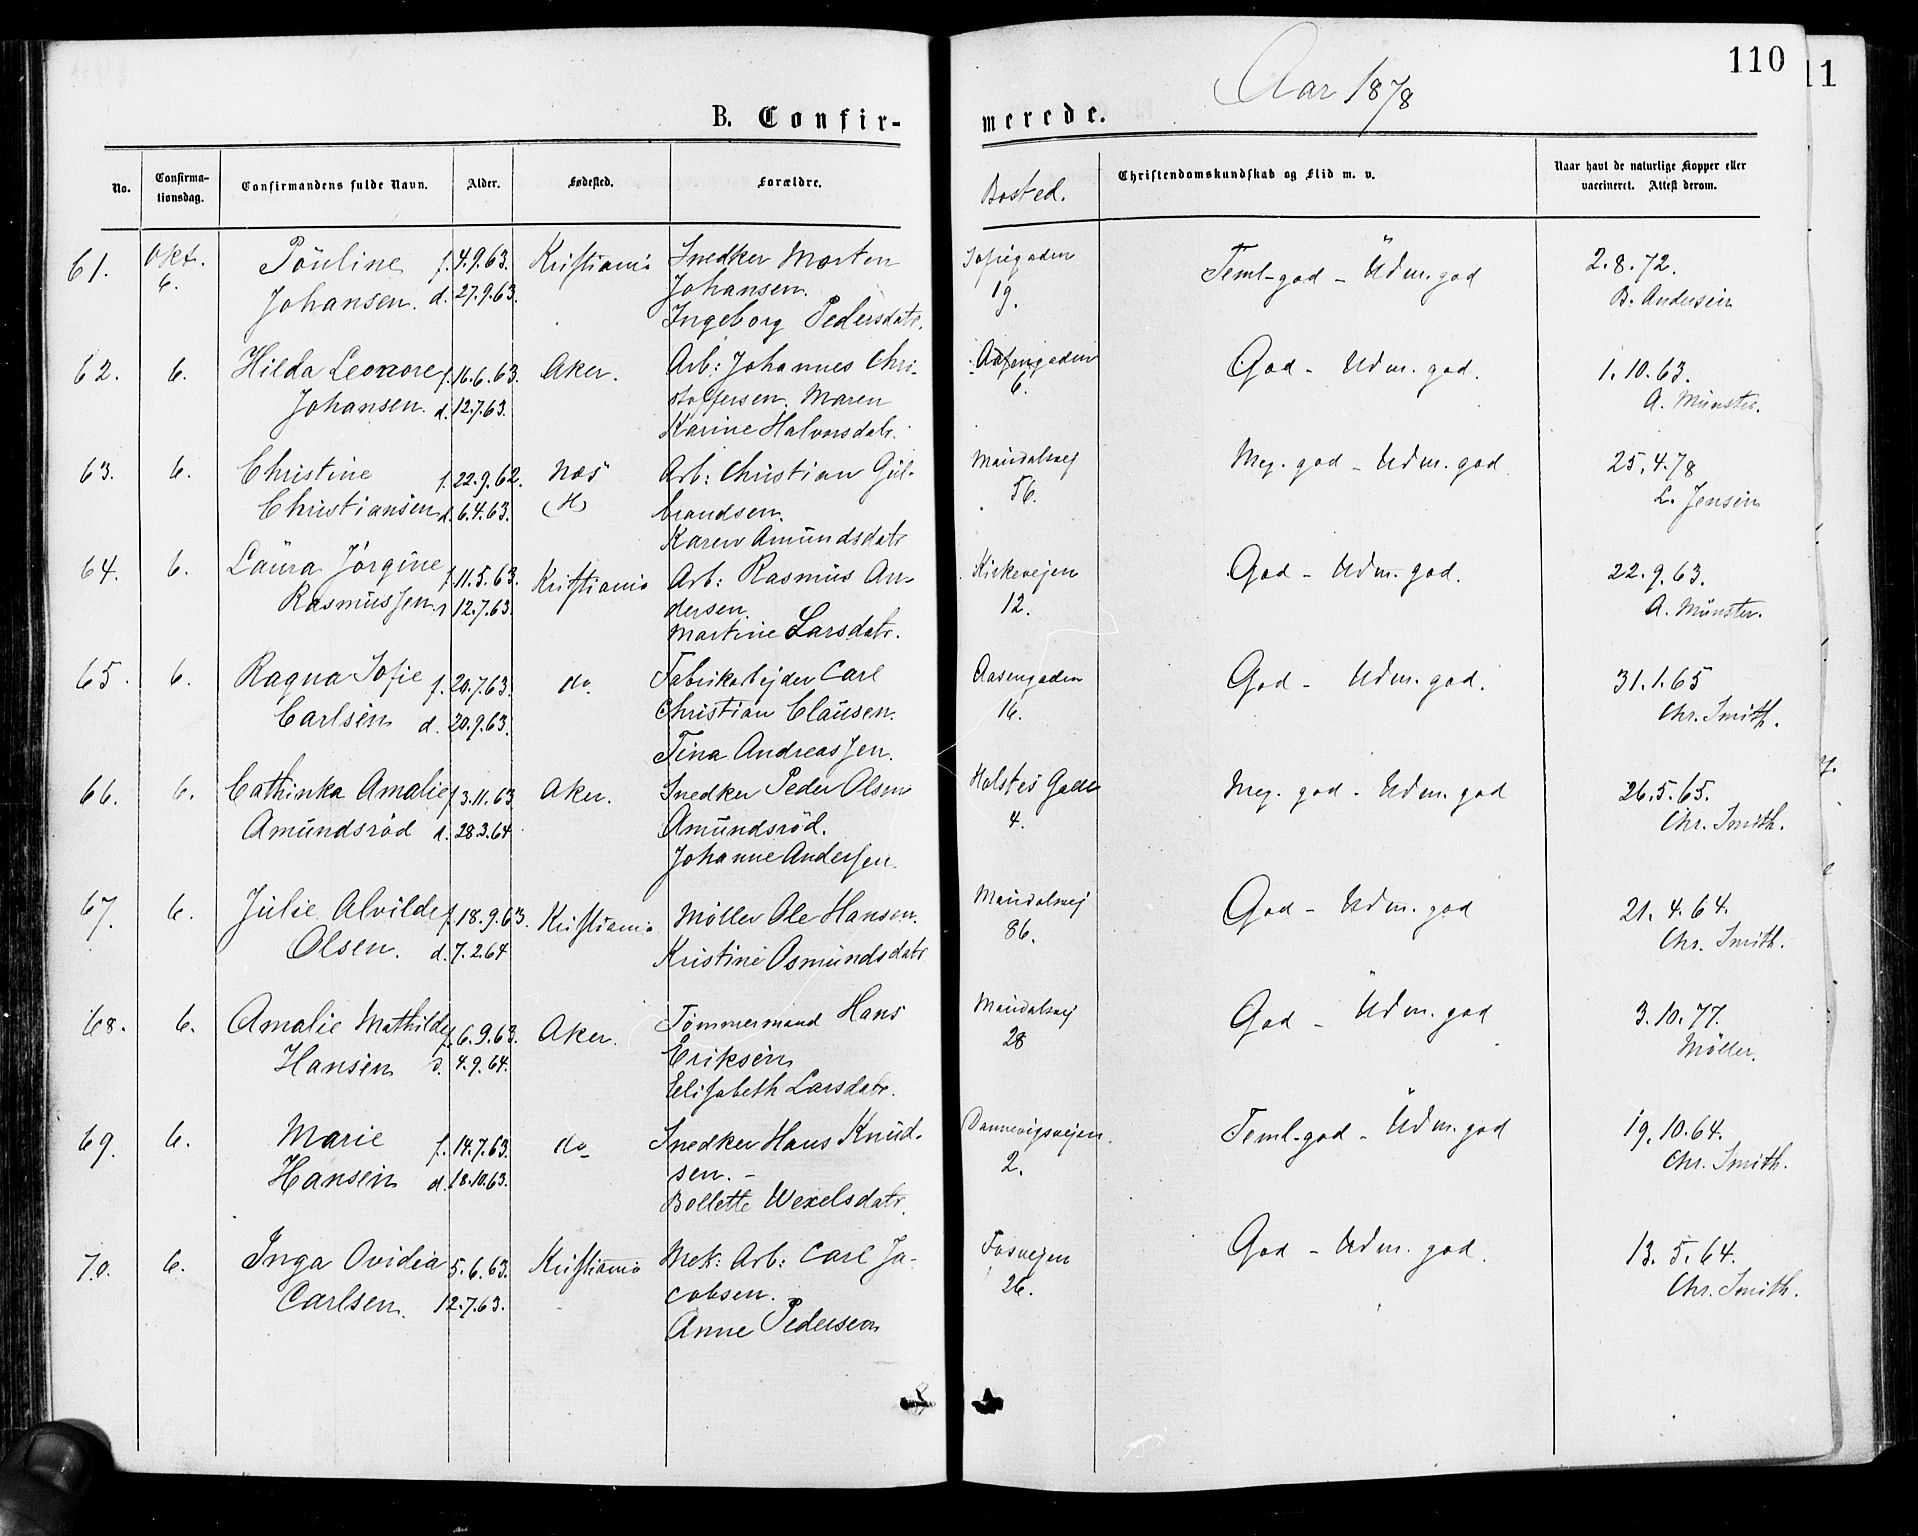 110
11
Aar 1878
B. Confir-
merede.
No.
Confirma-
tionsdag.
Confirmandens fulde Navn.
Alder.
Fødested.
Forældre.
Bosted.
Christendomskundskab og Flid m. v.
Naar havt de naturlige Kopper eller
vaccineret. Attest derom.
61. Okt. Pouline f. 4.9.63. Kristiania Snedker Morten Sofiegaden Teml-god - Udm. god 2.8.72.
6. Johansen. d. 27.9.63. Johansen. 19. B. Andersen
Ingeborg Pedersdatr.
62. 6. Hilda Leonore f. 16.6.63. Aker. Arb: Johannes Chri- Aasengaden God - Udm. god. 1.10.63.
Johansen. d. 12.7.63. stoffersen. Maren 6. A. Münster.
Karine Halvorsdatr.
63. 6. Christine f. 22.9.62. Næs Arb: Christian Gul- Maridalsvej Meg. god - Udm. god 25.4.78
Christiansen d. 6.4.63. (H) brandsen. 56. L. Jensen
Karen Amundsdatr
64. 6. Laura Jørgine f. 11.5.63. Kristiania Arb: Rasmus An- Kirkevejen God - Udm. god. 22.9.63.
Rasmussen d. 12.7.63. dersen. 12. A. Münster.
Martine Larsdatr.
65. 6. Ragna Sofie f. 20.7.63. do. Fabrikarbejder Carl Aasengaden God - Udm. god. 31.1.65
Carlsen d. 20.9.63. Christian Clausen. 16. Chr. Smith.
Tina Andreassen.
66. 6. Cathinka Amalie f. 3.11.63 Aker. Snedker Peder Olsen Holstes Gade Meg. god - Udm. god 26.5.65.
Amundsrød d. 28.3.64 Amundsrød. 4. Chr. Smith.
Johanne Andersen.
67. 6. Julie Alvilde f. 18.9.63. Kristiania Møller Ole Hansen. Maridalsvej God - Udm. god 21.4.64.
Olsen. d. 7.2.64 Kristine Asmundsdatr 86. Chr. Smith.
68. 6. Amalie Mathilde f. 6.9.63. Aker. Tømmermand Hans Maridalsvej God - Udm. god 3.10.77.
Hansen d. 4.9.64. Eriksen 28 Møller.
Elisabeth Larsdatr.
69. 6. Marie f. 14.7.63. do Snedker Hans Knud- Dannevigsvejen. Teml-god - Udm. god 19.10.64.
Hansen d. 18.10.63. sen. - 2. Chr. Smith.
Bollette Wexelsdatr.
70. 6. Inga Ovidia 5.6.63. Kristiania Mek: Arb: Carl Ja- Fosvejen God - Udm. god. 13.5.64.
Carlsen. 12.7.63. cobsen. 26. Chr. Smith.
Anne Pedersen